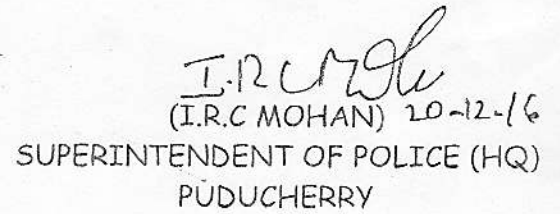 I.R C Moh
(I.R.C MOHAN) 20-12-16
SUPERINTENDENT OF POLICE (HQ)
PUDUCHERRY